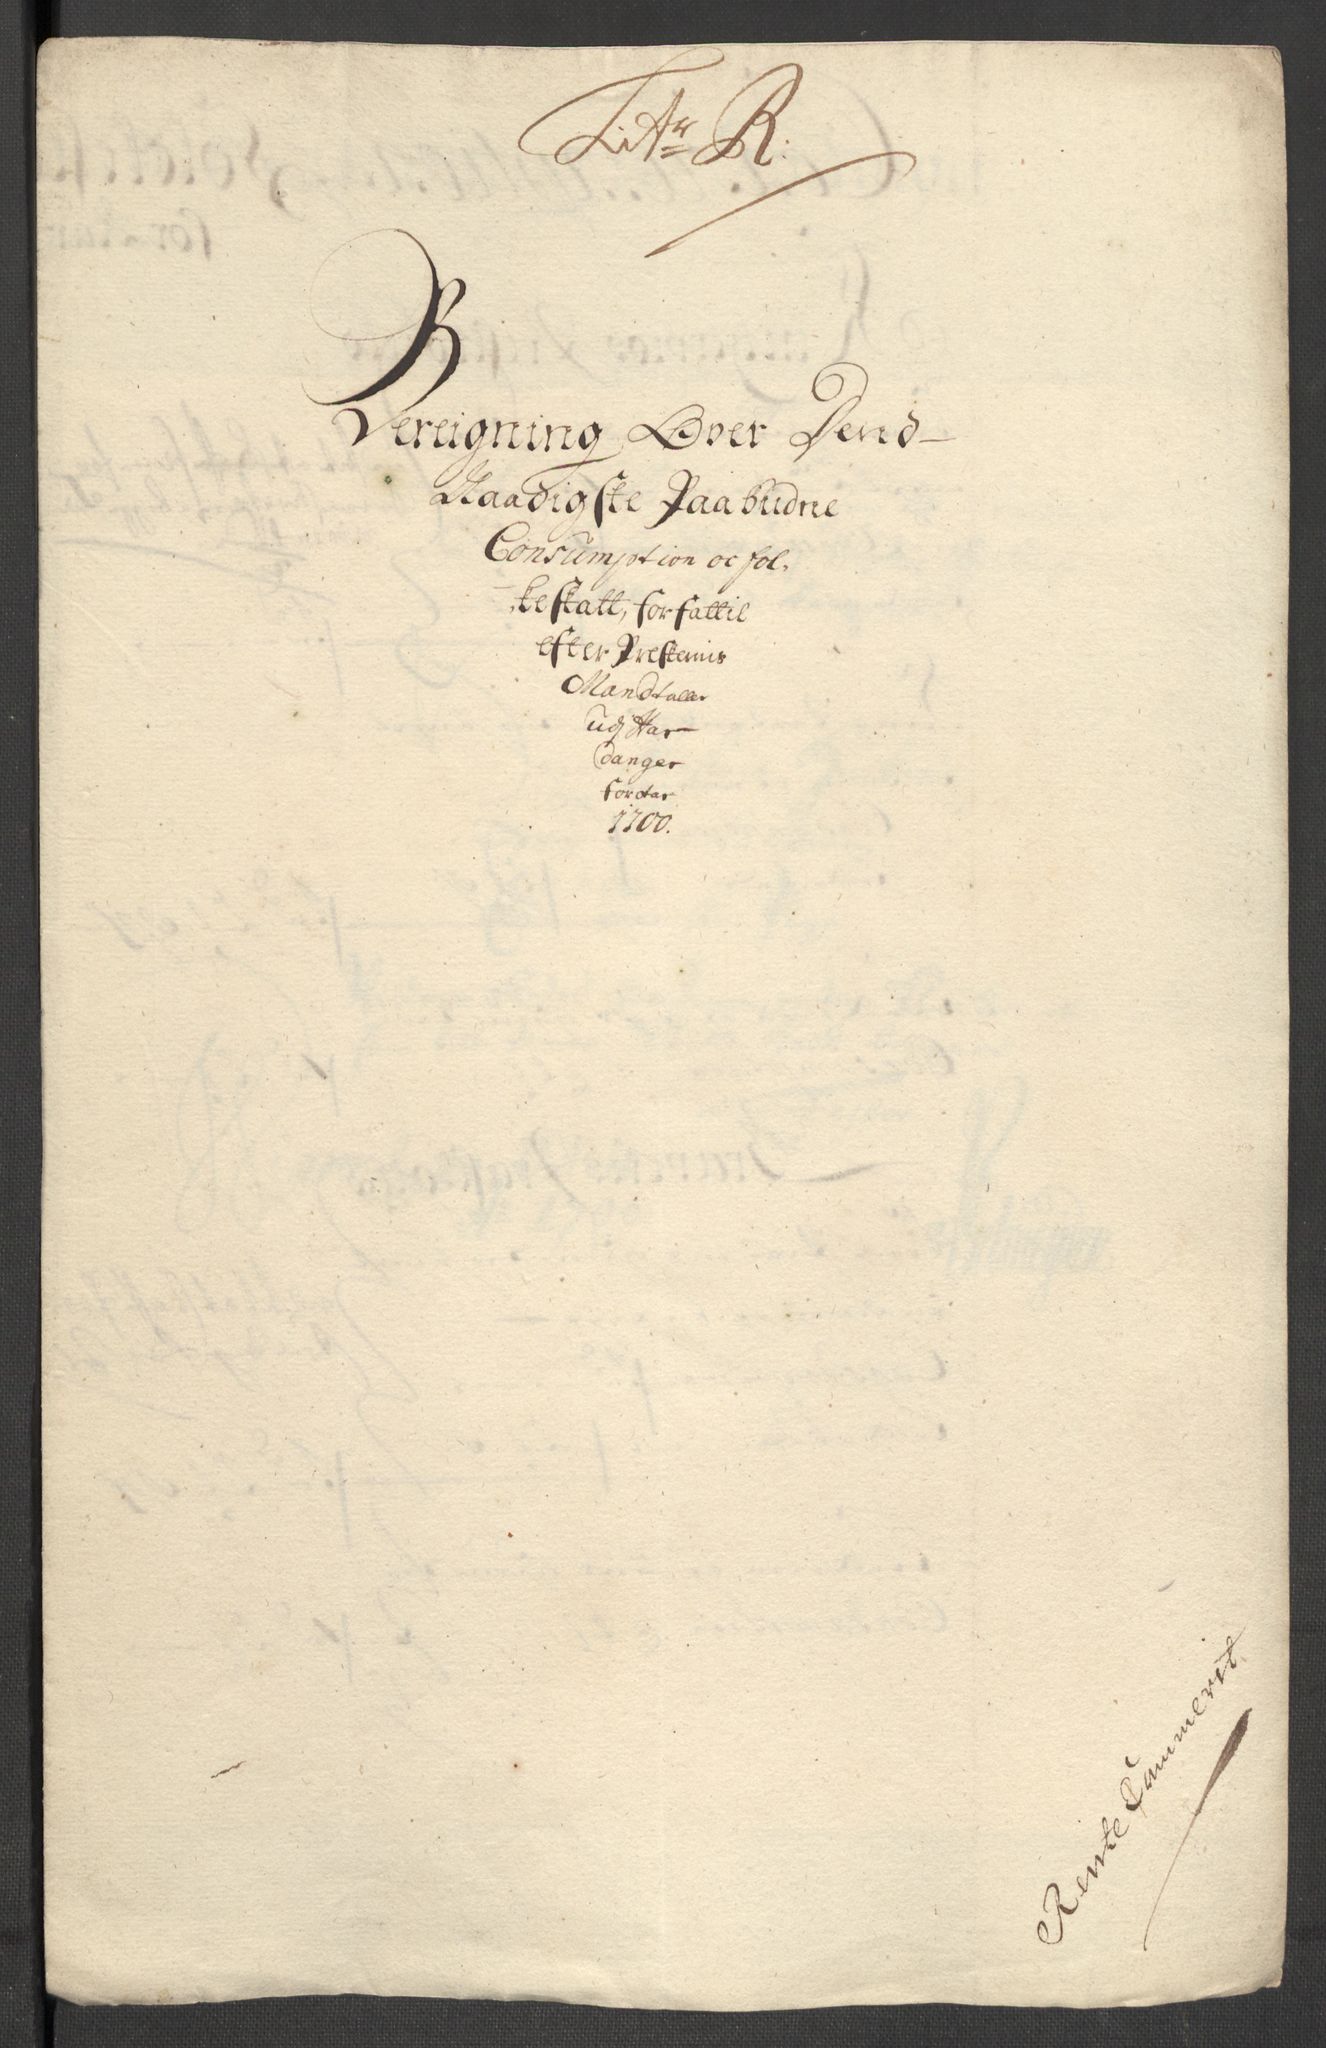 Litr R:
Bereigning Over Dend
Naadigste Paabudne
Consumption oc fol,
,keskatt, forfattit
efter Presternis
Mandtaller
udj Har
danger
for Aar
1700.
Rente Cammerit